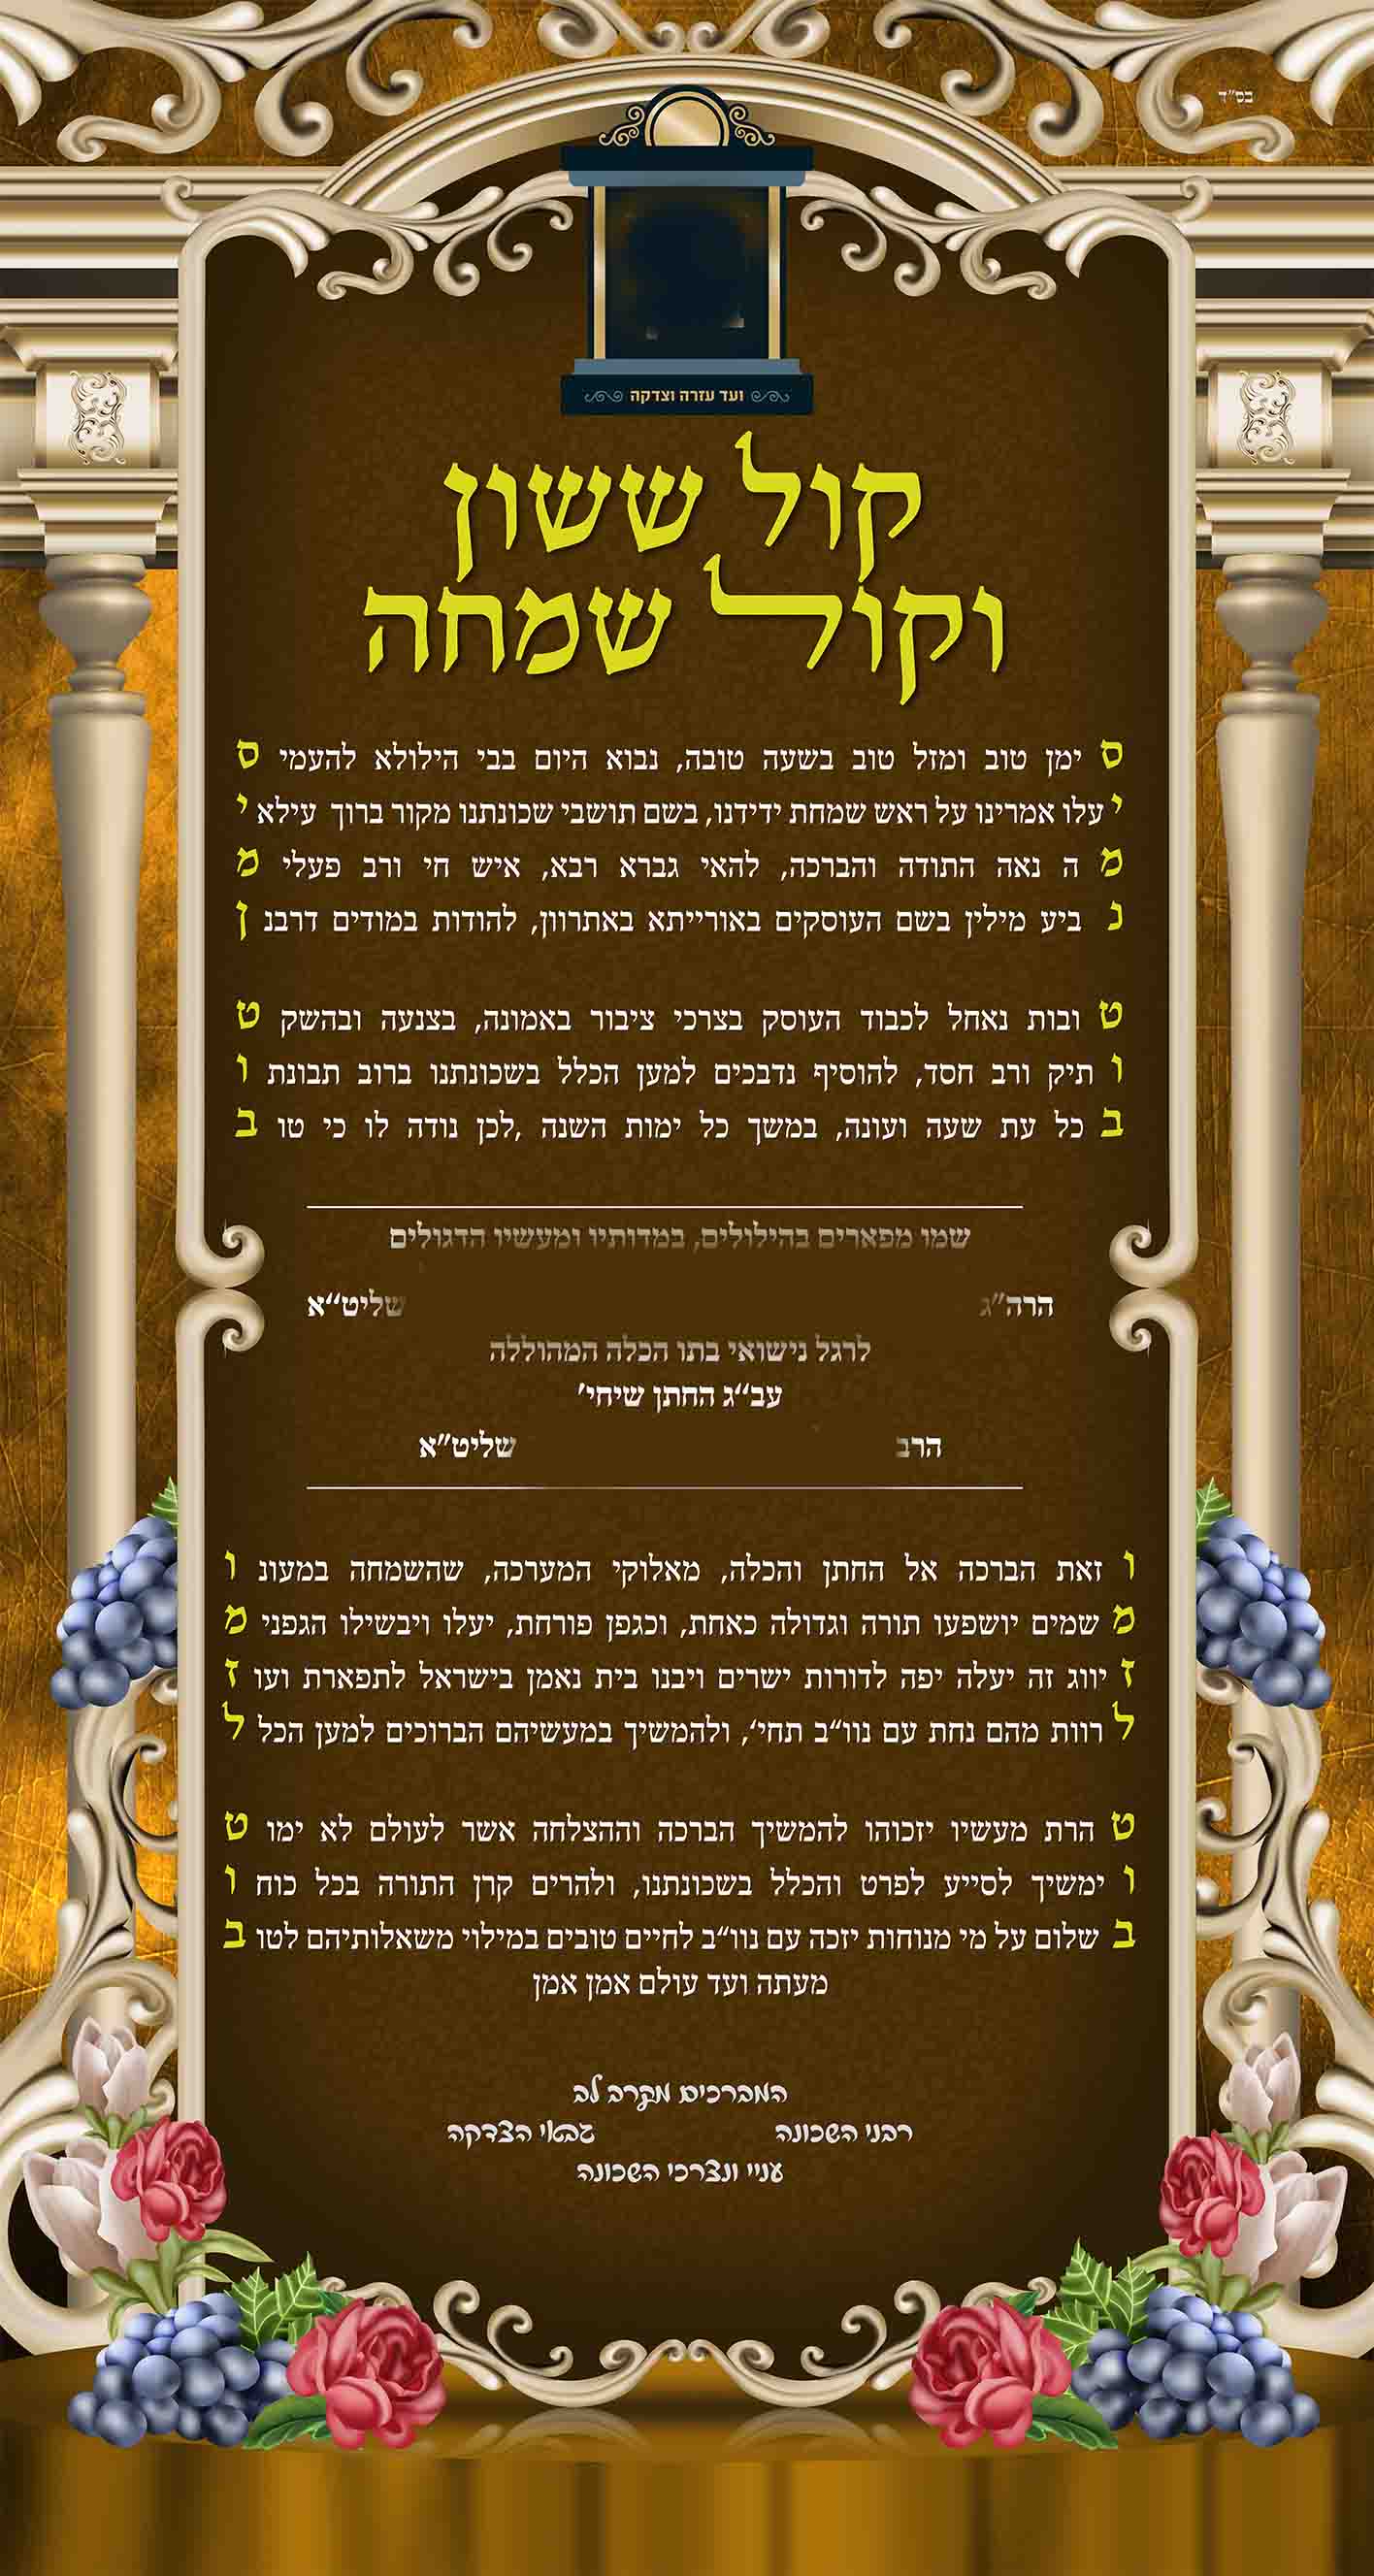 בס"ד
ועד עזרה וצדקה
קול ששון
וקול שמחה
ס ימן טוב ומזל טוב בשעה טובה, נבוא היום בבי הילולא להעמי ס
י עלו אמרינו על ראש שמחת ידידנו, בשם תושבי שכונתנו מקור ברוך עילא י
מ ה נאה התודה והברכה, להאי גברא רבא, איש חי ורב פעלי מ
נ ביע מילין בשם העוסקים באורייתא באתרוון, להודות במודים דרבנ ן
ט ובות נאחל לכבוד העוסק בצרכי ציבור באמונה, בצנעה ובהשק ט
ו תיק ורב חסד, להוסיף נדבכים למען הכלל בשכונתנו ברוב תבונת ו
ב כל עת שעה ועונה, במשך כל ימות השנה ,לכן נודה לו כי טו ב
שמו מפארים בהילולים, במדותיו ומעשיו הדגולים
הרה"ג שליט"א
לרגל נישואי בתו הכלה המהוללה
עב"ג החתן שיחי'
הרב שליט"א
ו זאת הברכה אל החתן והכלה, מאלוקי המערכה, שהשמחה במעונ ו
מ שמים יושפעו תורה וגדולה כאחת, וכגפן פורחת, יעלו ויבשילו הגפני מ
ז יווג זה יעלה יפה לדורות ישרים ויבנו בית נאמן בישראל לתפארת ועו ז
ל רוות מהם נחת עם נוו"ב תחי', ולהמשיך במעשיהם הברוכים למען הכל ל
ט הרת מעשיו יזכוהו להמשיך הברכה וההצלחה אשר לעולם לא ימו ט
ו ימשיך לסייע לפרט והכלל בשכונתנו, ולהרים קרן התורה בכל כוח ו
ב שלום על מי מנוחות יזכה עם נוו"ב לחיים טובים במילוי משאלותיהם לטו ב
מעתה ועד עולם אמן אמן
המברכים מקרב לב
רבני השכונה גבאי הצדקה
עניי ונצרכי השכונה